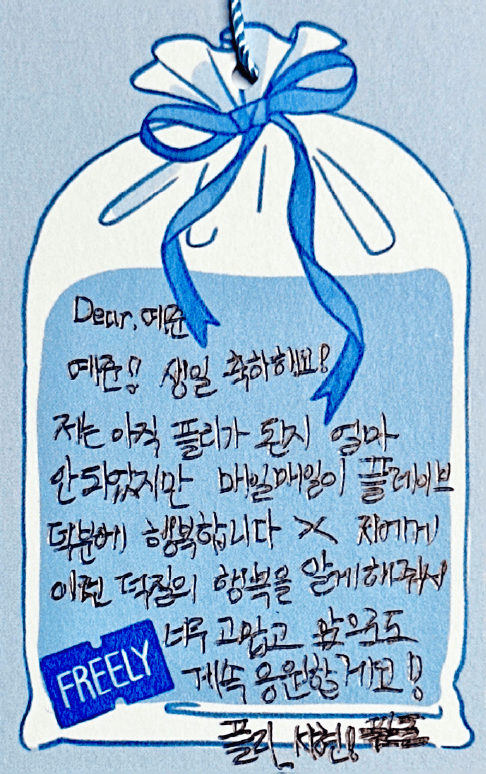 Dear, 예준
예준!! 생일 축하해요!
저는 아직 플리가 된지 얼마
안되었지만 매일매일이 플레이브
덕분에 행복합니다 >< 저에게
이런 덕질의 행복을 알게해줘서
너무 고맙고 앞으로도
계속 응원할게요!!
FREELY
플리_지현!